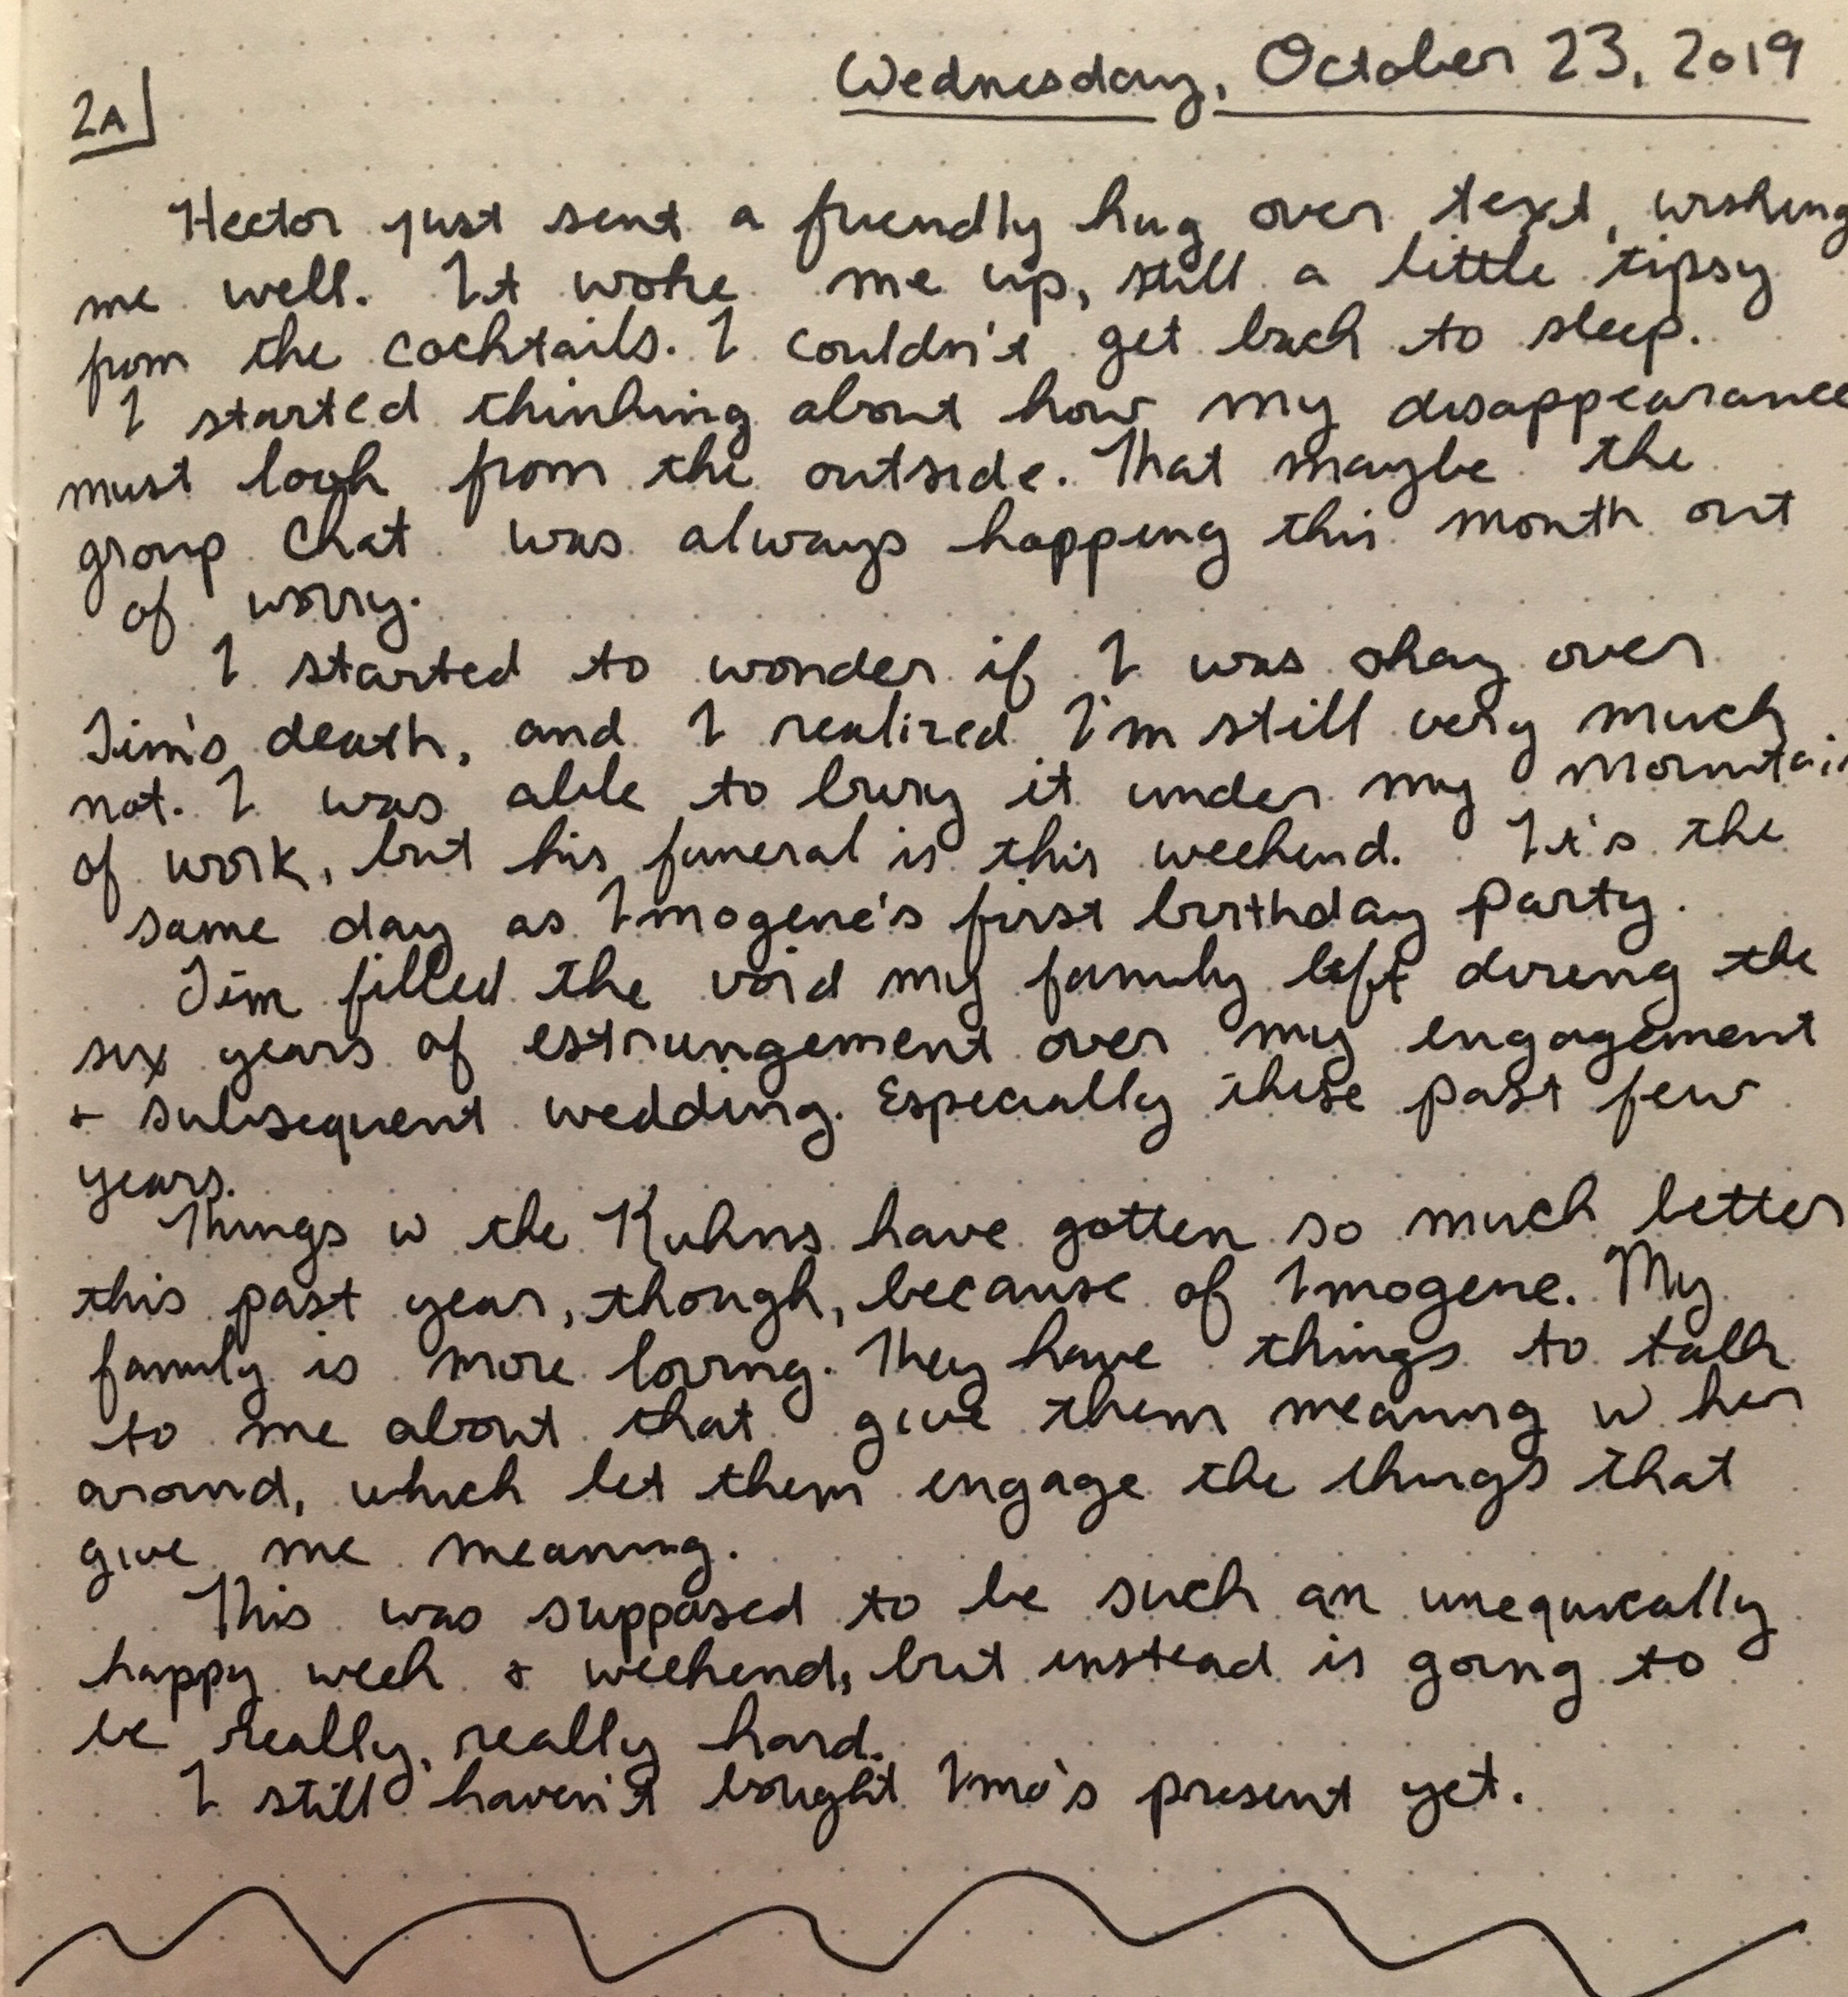 Wednesday, October 23, 2019
2A
Hector just sent a friendly hug over text, wishing
me well. It woke me up, still a little tipsy
from the cocktails. I couldn't get back to sleep.
I started thinking about how my disappearance
must look from the outside. That maybe the
group chat was always happping this month out
of worry.
I started to wonder if I was okay over
Jim's death, and I realized I'm still very much
not. I was able to bury it under my mountai
of work, but his funeral is this weekend. It's the
same day as Imogene's first birthday party.
Jim filled the void my family left during the
six years of estrangement over my engagement
+ subsequent wedding. Especially these past few
years.
Things w the Kuhns have gotten so much better
this past year, though, because of Imogene. My
family is more loving. They have things to talk
to me about that give them meaning w her
around, which let them engage the things that
give me meaning.
This was supposed to be such an unequivically
happy week + weekend, but instead is going to
be really, really hard.
I still haven't bought Imo's present yet.